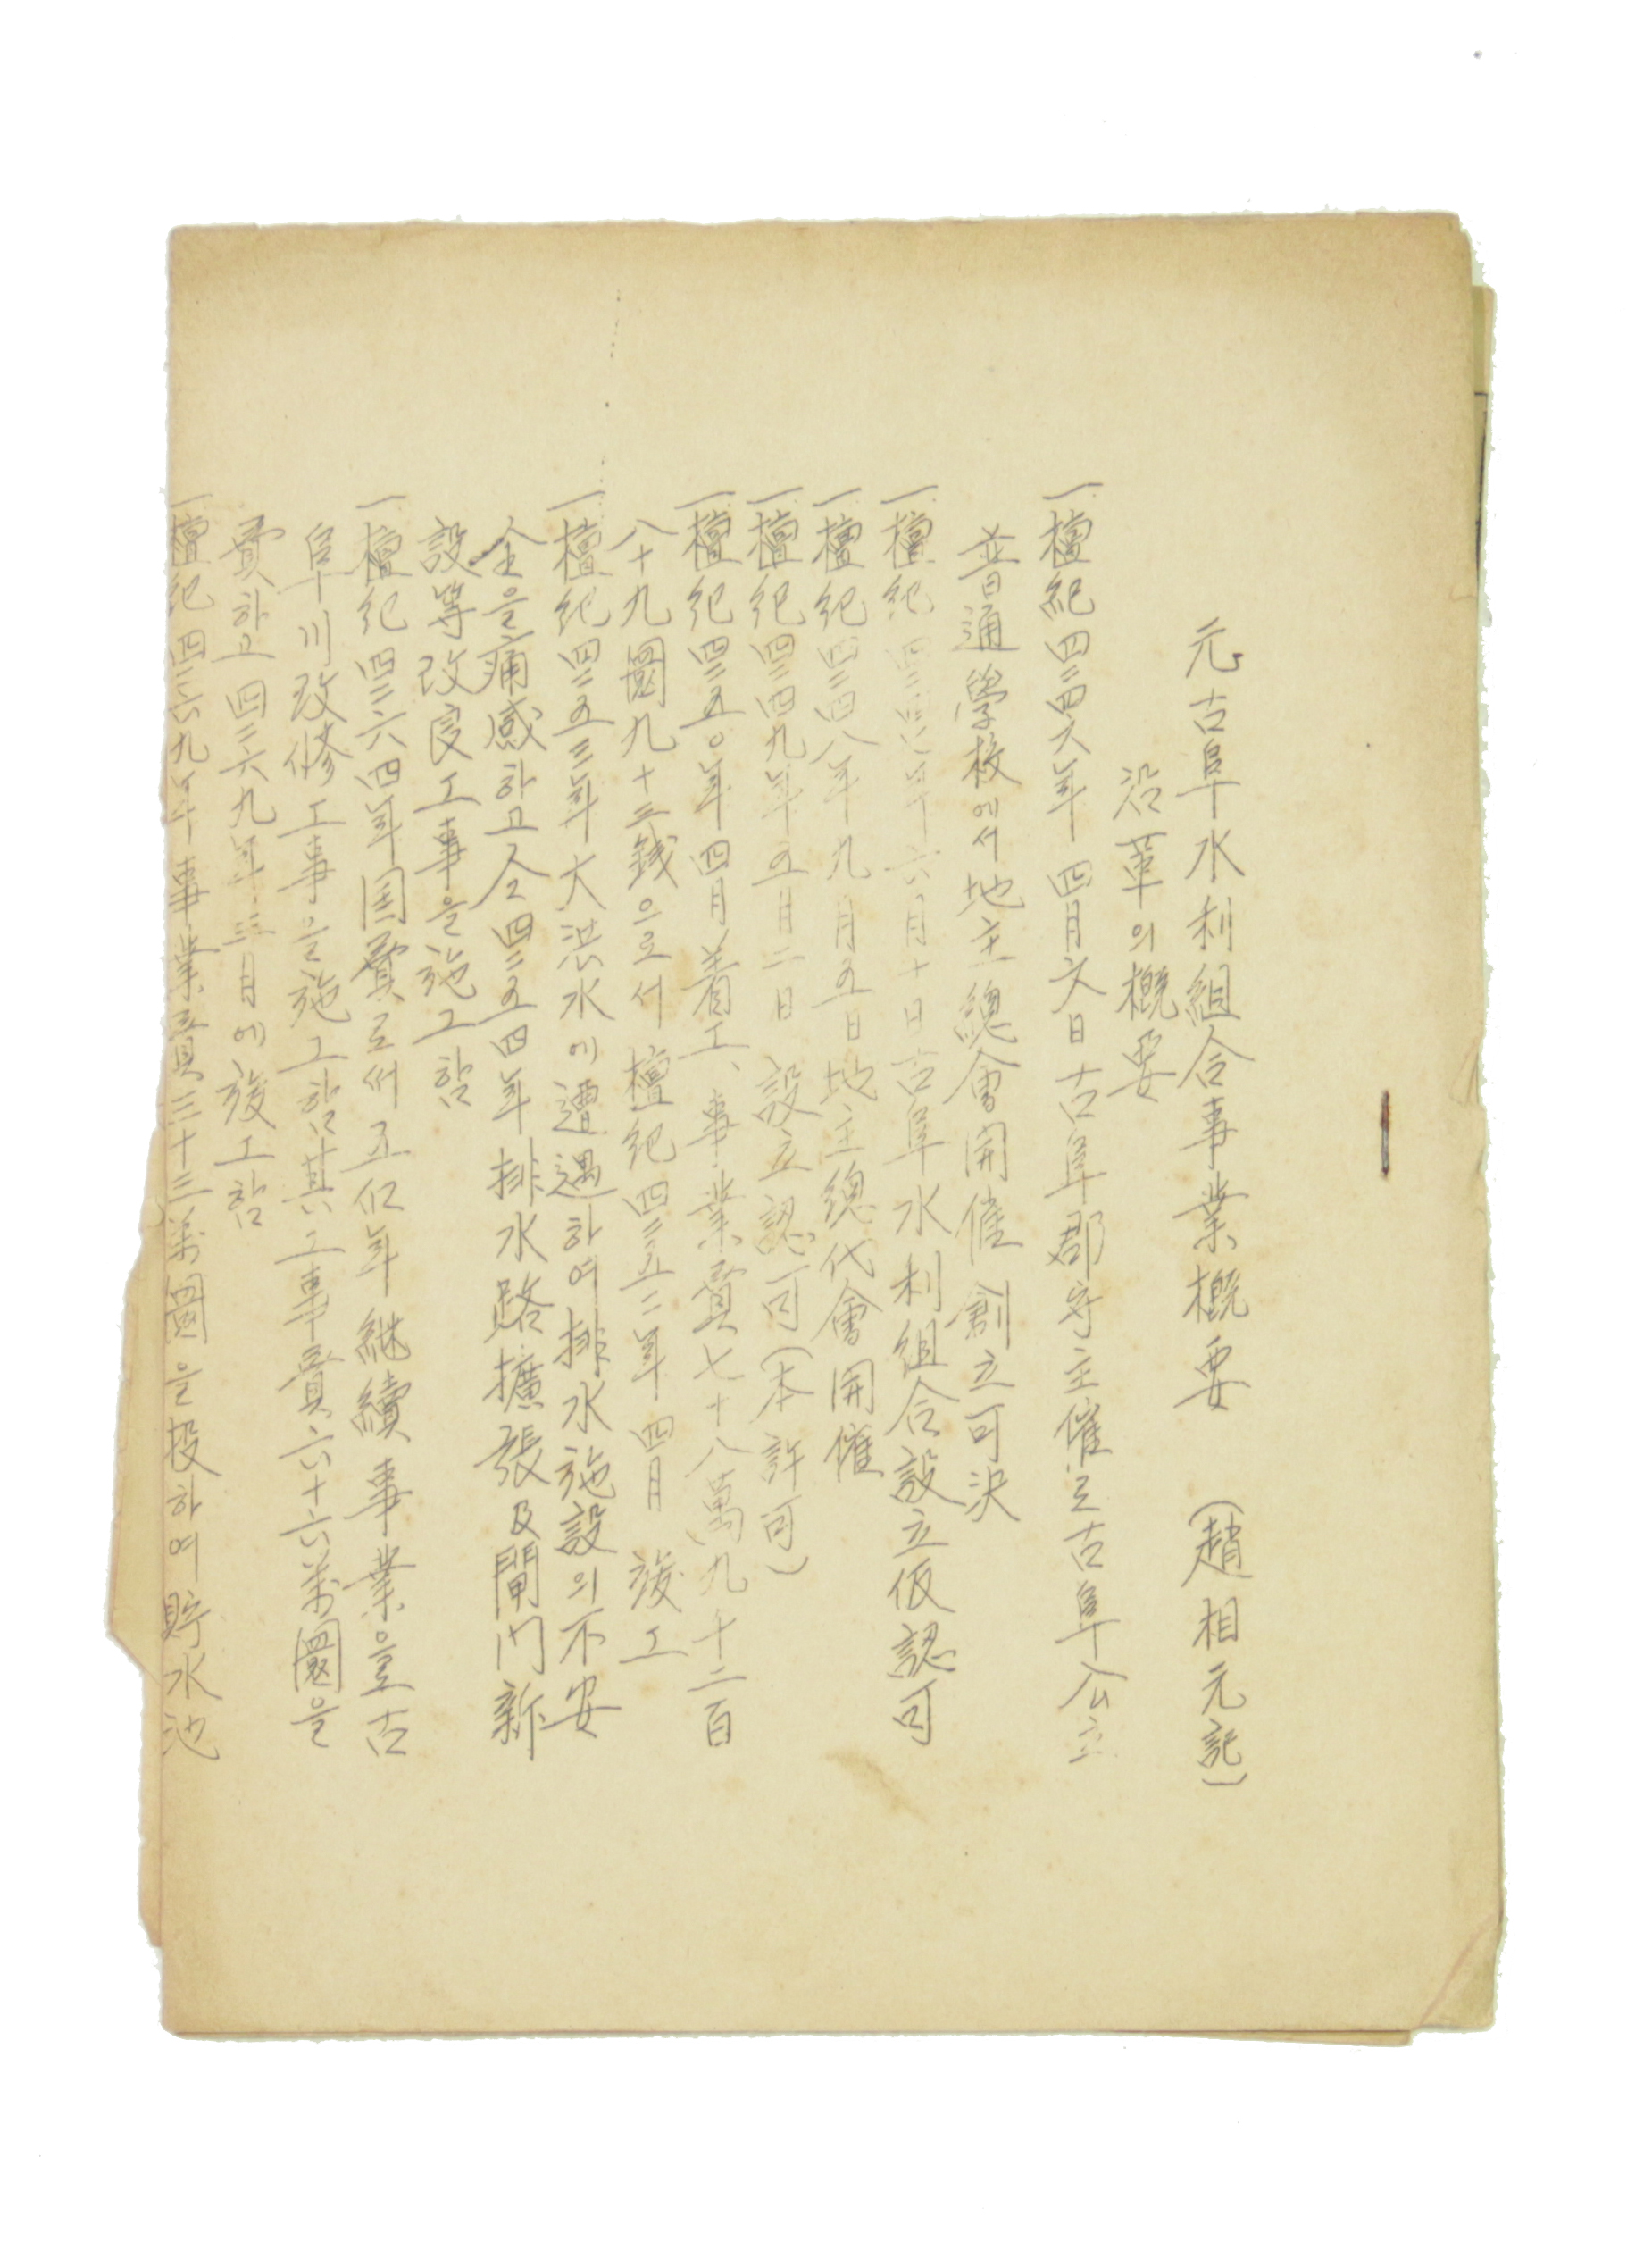 元古阜水利組合事業概要 (趙相元記)
沿革의概要
一. 檀紀四二四六年四月六日古阜郡守主催로古阜公立
普通學校에서地主總會開催創立可決
一. 檀紀四二四七年六月十日古阜水利組合設立仮認可
一. 檀紀四二四八年九月五日地主總代會開催
一. 檀紀四二四九年五月二日 設立認可(本許可)
一. 檀紀四二五〇年四月着工、事業費七十八萬九千二百
八十九圜九十三錢으로서檀紀四二五二年四月 竣工
一. 檀紀四二五三年大洪水에遭遇하여排水施設의不安
全을痛感하고仝四二五四年排水路擴張及閘門新
設等改良工事을施工함
一. 檀紀四二六四年国費로써五個年継續事業으로古
阜川改修工事을施工함其工事費六十六萬圜을
費하고四二六九年三月에竣工함
一. 檀紀四二六九年事業費三十三萬圜을投하여貯水池